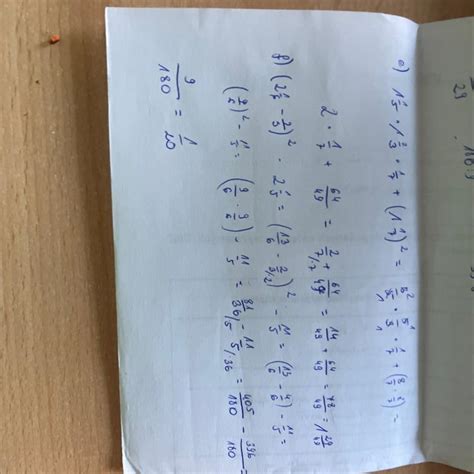 a) 1 1/5 · 1 2/3 · 1/7 + (1 1/7)² = 6²/5₁ · 5¹/3₁ · 1/7 + (8/7 · 8/7) =
2 · 1/7 + 64/49 = 2/7 /·7 + 64/49 = 14/49 + 64/49 = 78/49 = 1 29/49
b) (2 1/6 - 2/3)² - 2 1/5 = (13/6 - 2/3 /·2)² - 11/5 = (13/6 - 4/6) - 11/5 =
(9/6)² - 11/5 = (9/6 · 9/6) - 11/5 = 81/36 /5 - 11/5 /36 = 405/180 - 396/180 =
9/180 = 1/20